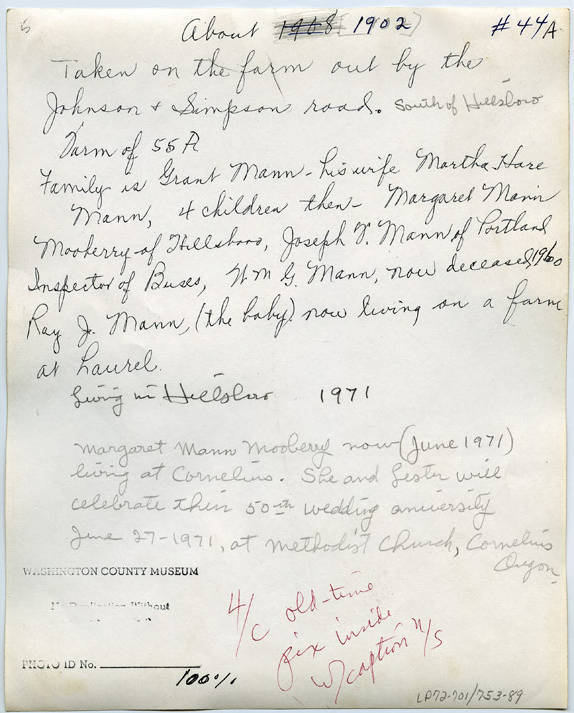 5
About 1968 1902 #44A
Taken on the farm out by the
Johnson & Simpson road. South of Hillsboro
Farm of 55 A
Family is Grant Mann - his wife Martha Hare
Mann, 4 children then - Margaret Mann
Mooberry of Hillsboro, Joseph T. Mann of Portland
Inspector of Buses, Wm G. Mann, now deceased, 1960
Ray J. Mann, (the baby) now living on a farm
at Laurel.
Living in Hillsboro 1971
Margaret Mann Mooberry now (June 1971)
living at Cornelius. She and Lester will
celebrate their 50th wedding aniversity
June 27-1971, at Methodist Church, Cornelius
Oregon
WASHINGTON COUNTY MUSEUM
Without
PHOTO ID No.
4/c old-time
pix inside
w/caption n/s
100%
LP72-701/753-89